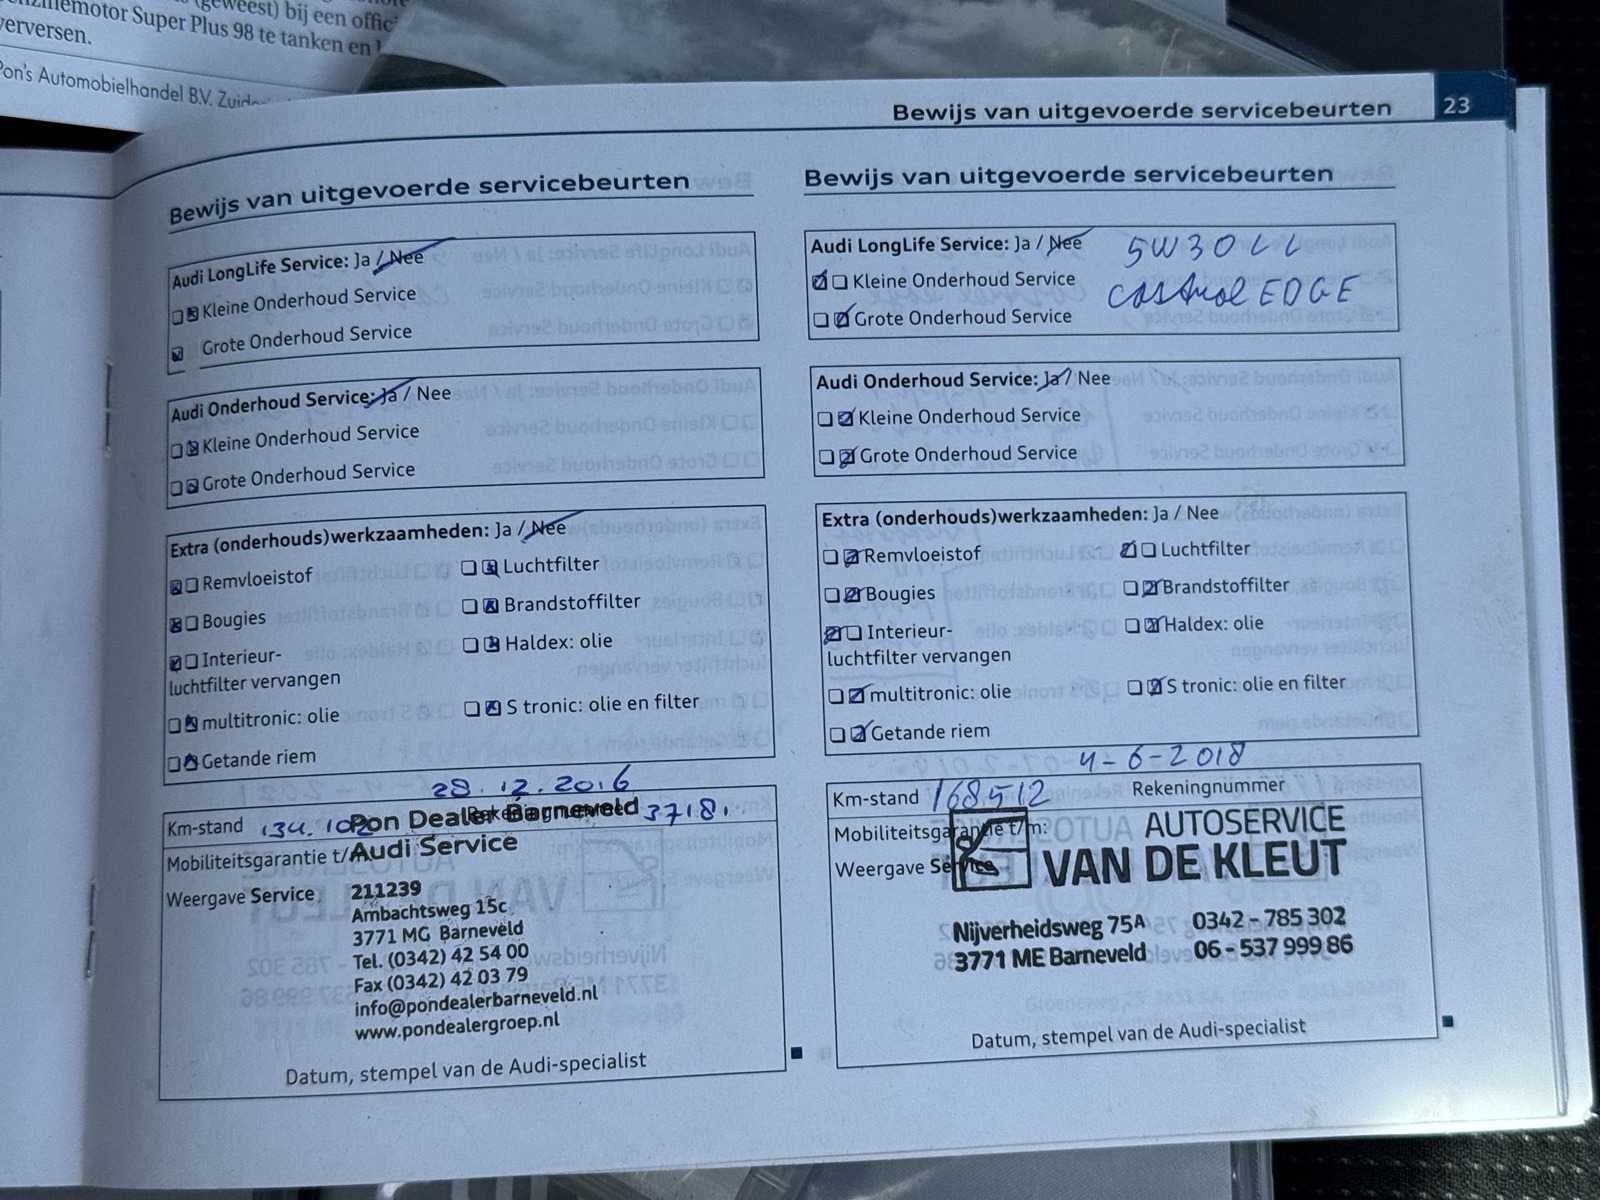 (geweest) bij een offic
motor Super Plus 98 te tanken en
verversen.
Pon's Automobielhandel B.V.
Bewijs van uitgevoerde servicebeurten 23
Bewijs van uitgevoerde servicebeurten
Audi LongLife Service: Ja / Nee
Kleine Onderhoud Service
Grote Onderhoud Service
Audi Onderhoud Service: Ja / Nee
Kleine Onderhoud Service
Grote Onderhoud Service
Extra (onderhouds)werkzaamheden: Ja / Nee
Remvloeistof Luchtfilter
Bougies Brandstoffilter
Interieur- Haldex: olie
luchtfilter vervangen
multitronic: olie S tronic: olie en filter
Getande riem
28.12.2016
Km-stand 134.102 Rekeningnummer 3718.
Pon Dealer Barneveld
Mobiliteitsgarantie t/m:
Audi Service
Weergave Service
211239
Ambachtsweg 15c
3771 MG Barneveld
Tel. (0342) 42 54 00
Fax (0342) 42 03 79
info@pondealerbarneveld.nl
www.pondealergroep.nl
Datum, stempel van de Audi-specialist
Bewijs van uitgevoerde servicebeurten
Audi LongLife Service: Ja / Nee 5W30 LL
Kleine Onderhoud Service Castrol EDGE
Grote Onderhoud Service
Audi Onderhoud Service: Ja / Nee
Kleine Onderhoud Service
Grote Onderhoud Service
Extra (onderhouds)werkzaamheden: Ja / Nee
Remvloeistof Luchtfilter
Bougies Brandstoffilter
Interieur- Haldex: olie
luchtfilter vervangen
multitronic: olie S tronic: olie en filter
Getande riem
4-6-2018
Km-stand 168512 Rekeningnummer
Mobiliteitsgarantie t/m: AUTOSERVICE
Weergave Service VAN DE KLEUT
Nijverheidsweg 75A 0342 - 785 302
3771 ME Barneveld 06 - 537 999 86
Datum, stempel van de Audi-specialist